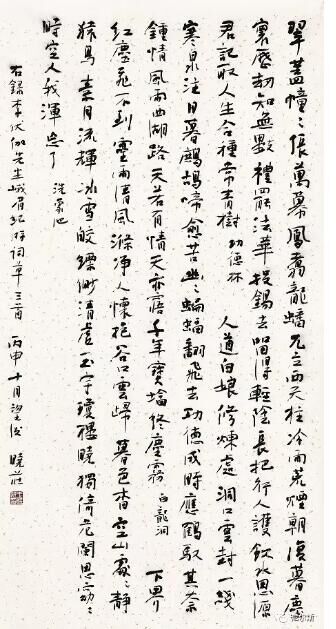 翠蓋幢〻張萬幕鳳翥龍蟠兀立西天柱冷雨荒煙朝復暮塵
寰歷劫知無數禮罷法華投錫去留得輕陰長把行人護飲水思源
君記取人生合種常青樹 功德林 人道白娘修煉處洞口雲封一綫
寒泉注日暮鷓鴣啼愈苦幽〻蝙蝠翻飛去功德成時應鶴馭其奈
鍾情風雨西湖路天若有情天亦寤千年寶塔終塵霧 白龍洞 下界
紅塵飛不到靈雨清風滌淨人懷抱谷口雲歸暮色杳空山處〻靜
猿鳥素月流輝冰雪皎縹緲清虛玉宇瓊樓曉獨倚危闌思窈〻
時空人我渾忘了 洗象池
右錄李伏伽先生峨眉紀游詞草三首 丙申十月望後 曉莊